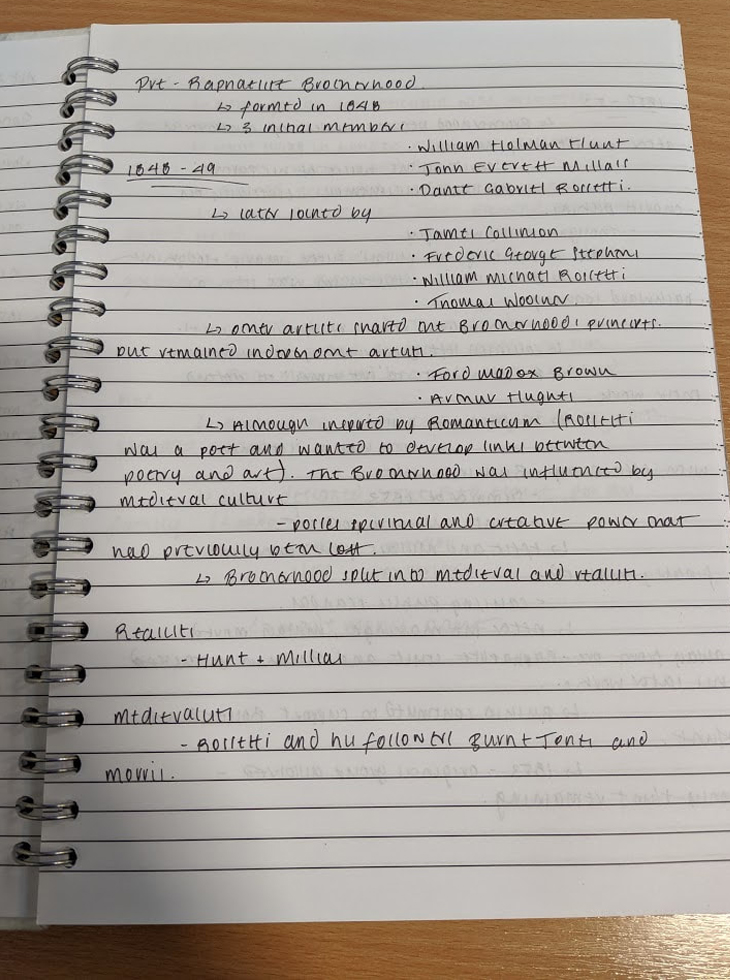 Pre-Raphaelite Brotherhood.
↳ formed in 1848
↳ 3 initial members
· William Holman Hunt
1848 - 49
· John Everett Millais
· Dante Gabriel Rossetti.
↳ later joined by
· James Collinson
· Frederic George Stephens
· William Michael Rossetti
· Thomas Woolner
↳ other artists shared the Brotherhood's principles.
but remained independent artists.
· Ford Madox Brown
· Arthur Hughes
↳ Although inspired by Romanticism (Rossetti
was a poet and wanted to develop links between
poetry and art). The Brotherhood was influenced by
medieval culture
- posses spiritual and creative power that
had previously been lost.
↳ Brotherhood split into medieval and realists.
Realists
- Hunt + Millias
Medievalists
- Rossetti and his followers Burne Jones and
Morris.